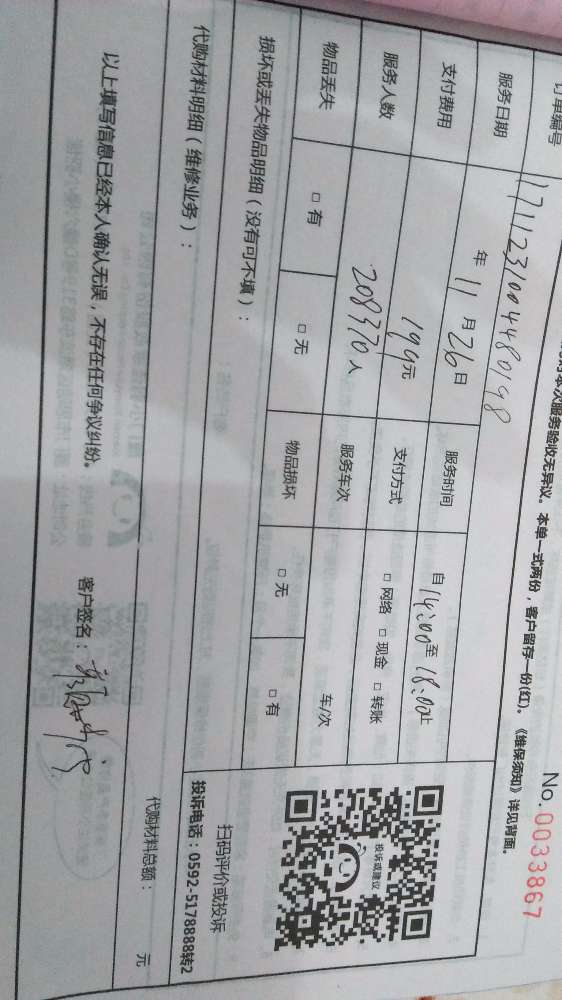 对本次服务验收无异议。本单一式两份，客户留存一份(红)。《维保须知》详见背面。
No. 0033867
订单编号 1711231004480198
服务日期 年 11 月 26 日 服务时间 自 14:00 至 18:00 止
支付费用 199 元 支付方式 □ 网络 □ 现金 □ 转账
服务人数 208370 人 服务车次 车/次
物品丢失 □ 有 □ 无 物品损坏 □ 无 □ 有
损坏或丢失物品明细（没有可不填）：
投诉或建议
扫码评价或投诉
投诉电话：0592-5178888转2
代购材料明细（维修业务）：
代购材料总额： 元
以上填写信息已经本人确认无误，不存在任何争议纠纷。 客户签名：